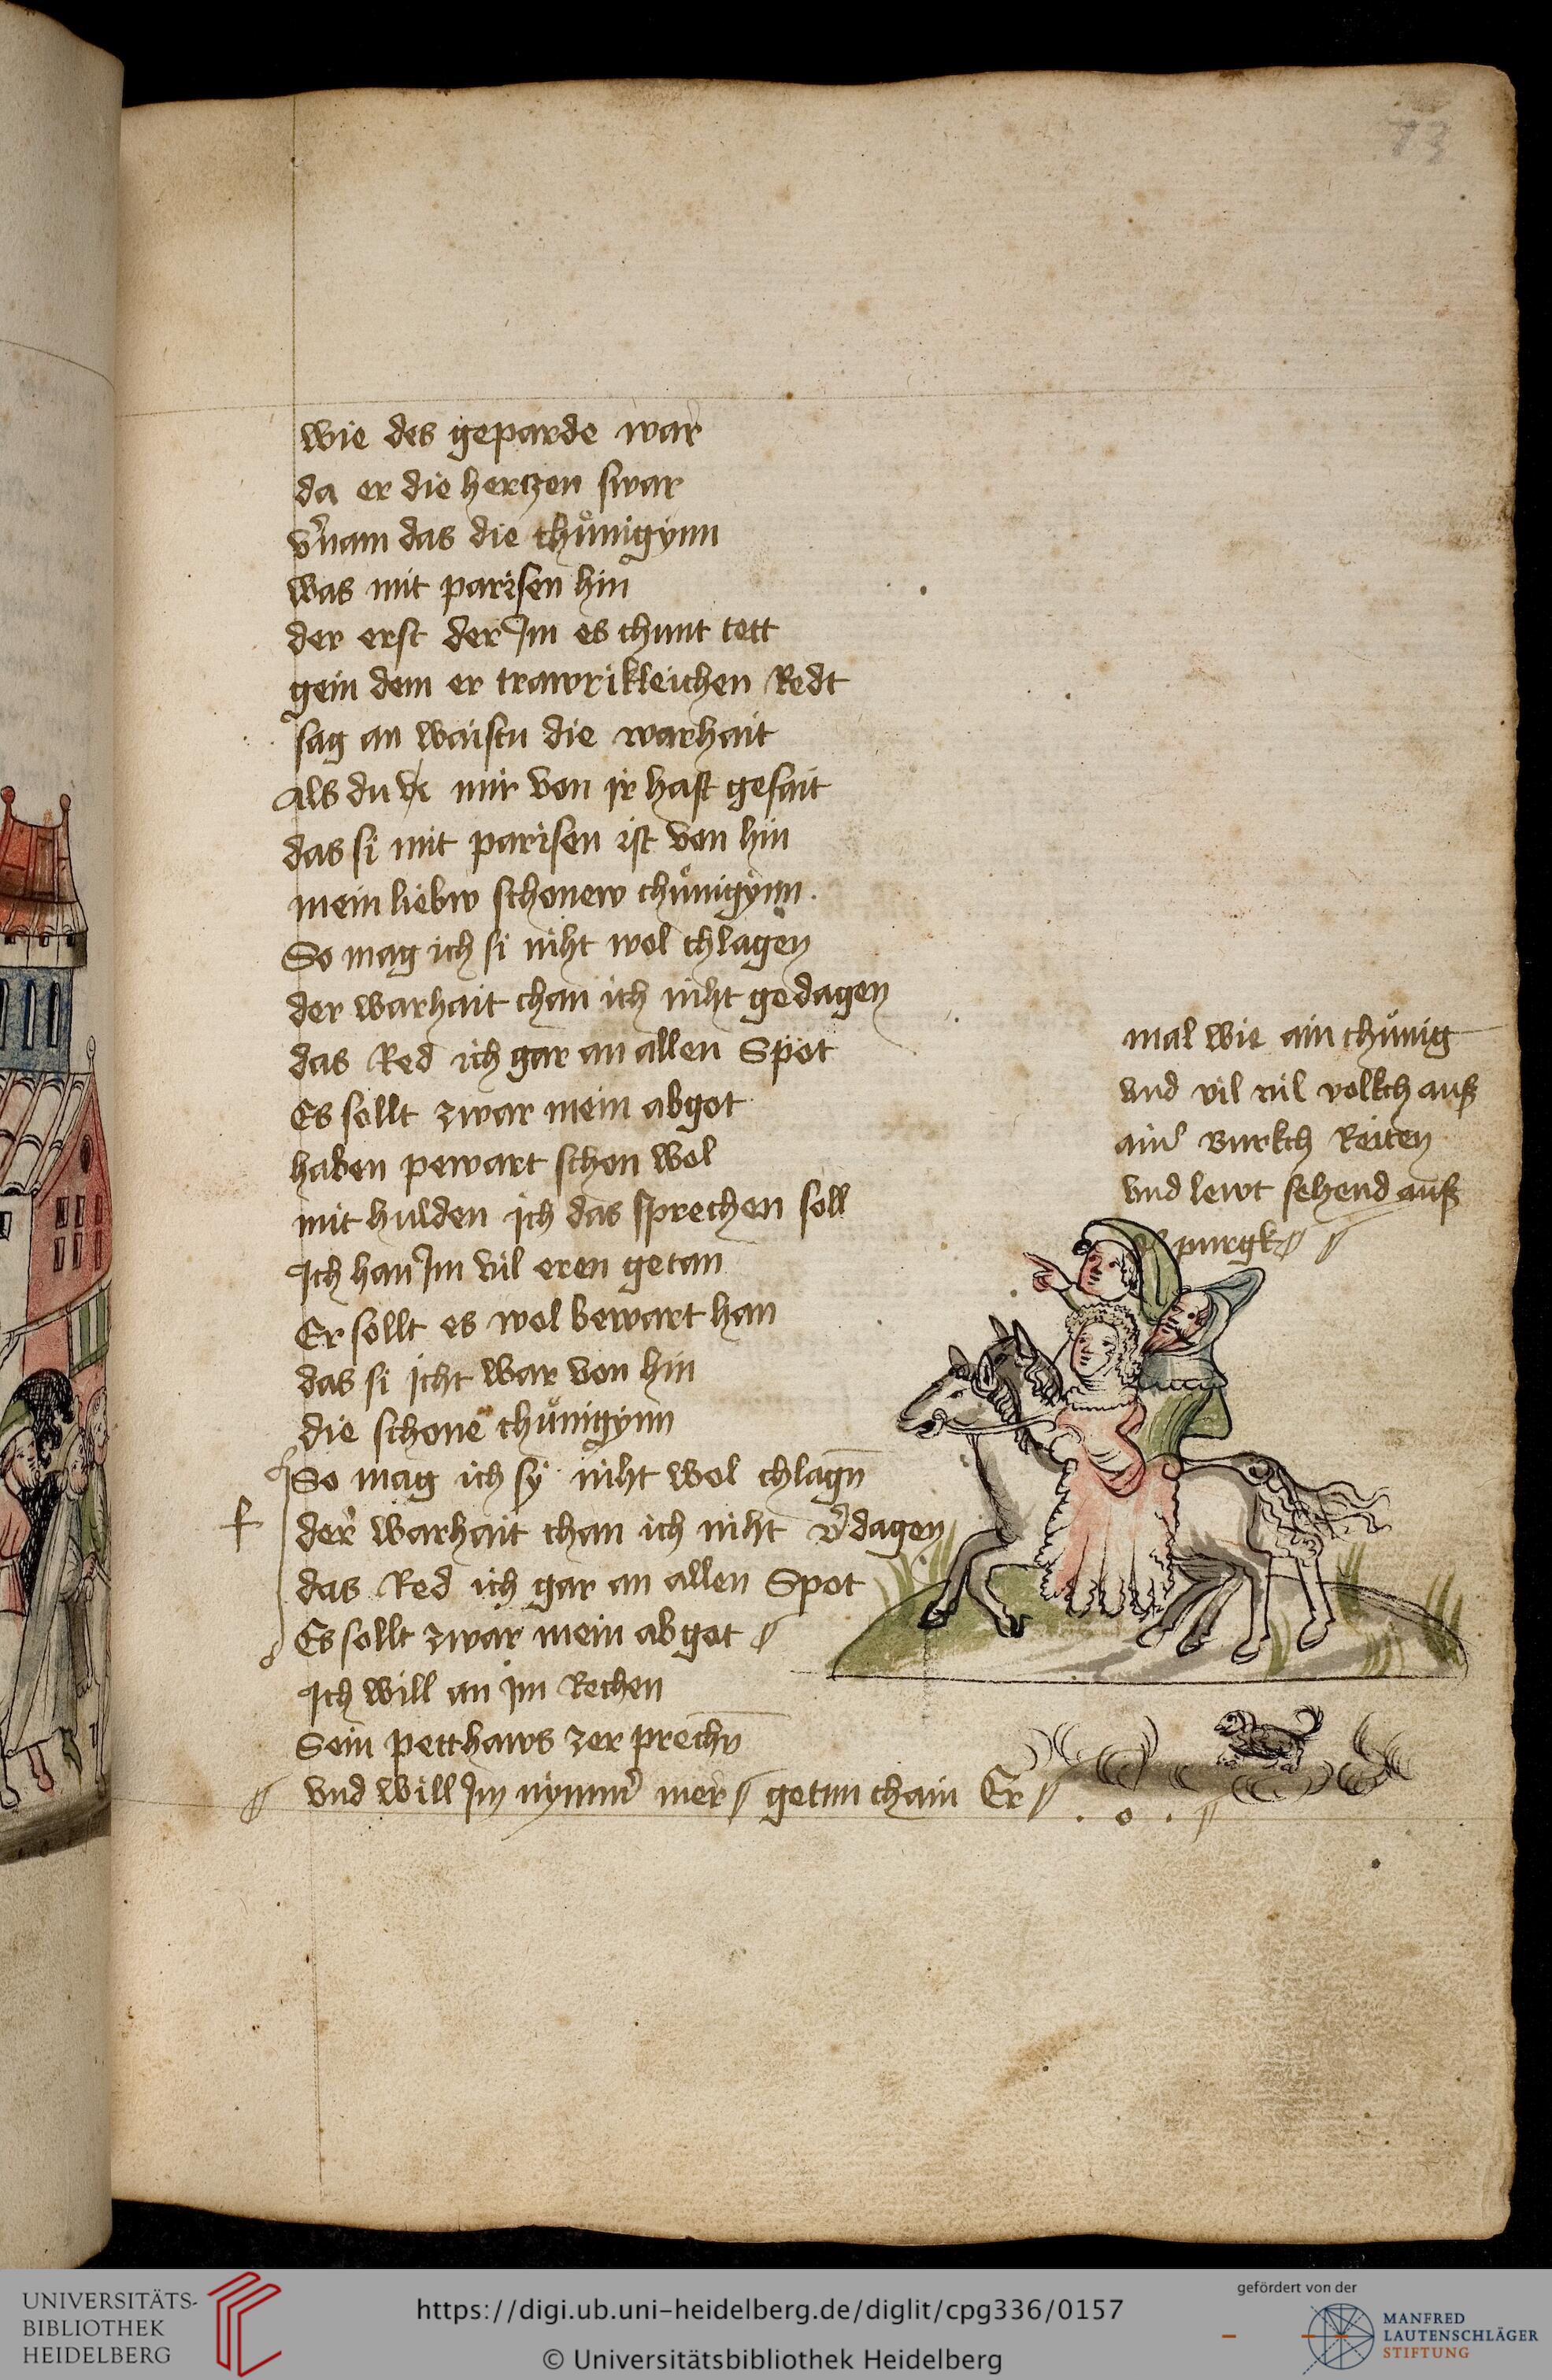 73
wie des geparde war
da er die hertzen swar
v̾nam das die chůnigynn
was mit parisen hin
der erst der Jm es chunt tett
gein dem er trawrikleichen Redt
sag an waistu die warhait
als du mir von jr hast gesait
das si mit parisen ist von hin
mein liebw schonew chůnigynn
So mag ich si niht wol chlagen
der warhait chan ich niht gedagen
das Red ich gar an allen Spot
Es sollt zwar mein abgot
haben pewart schon wol
mit hulden jch das sprechen soll
Jch han Jm vil eren getan
Er sollt es wol bewart han
das si jcht war von hin
die schone chůnigynn
So mag ich sy niht wol chlagn̄
der warhait chan ich niht v̾dagen
das Red ich gar an allen Spot
Es sollt zwar mein abgot
Jch will an jm Rechen
Sein petthaws zer prechn̄
vnd will Jm nymm̾ mer getun chain Er
mal wie ain chůnig
vnd vil vil volkch auß
ain̾ Burkch Reiten
vnd lewt sehend auß
purgk
UNIVERSITÄTS-
BIBLIOTHEK
HEIDELBERG
https://digi.ub.uni-heidelberg.de/diglit/cpg336/0157
© Universitätsbibliothek Heidelberg
gefördert von der
MANFRED
LAUTENSCHLÄGER
STIFTUNG